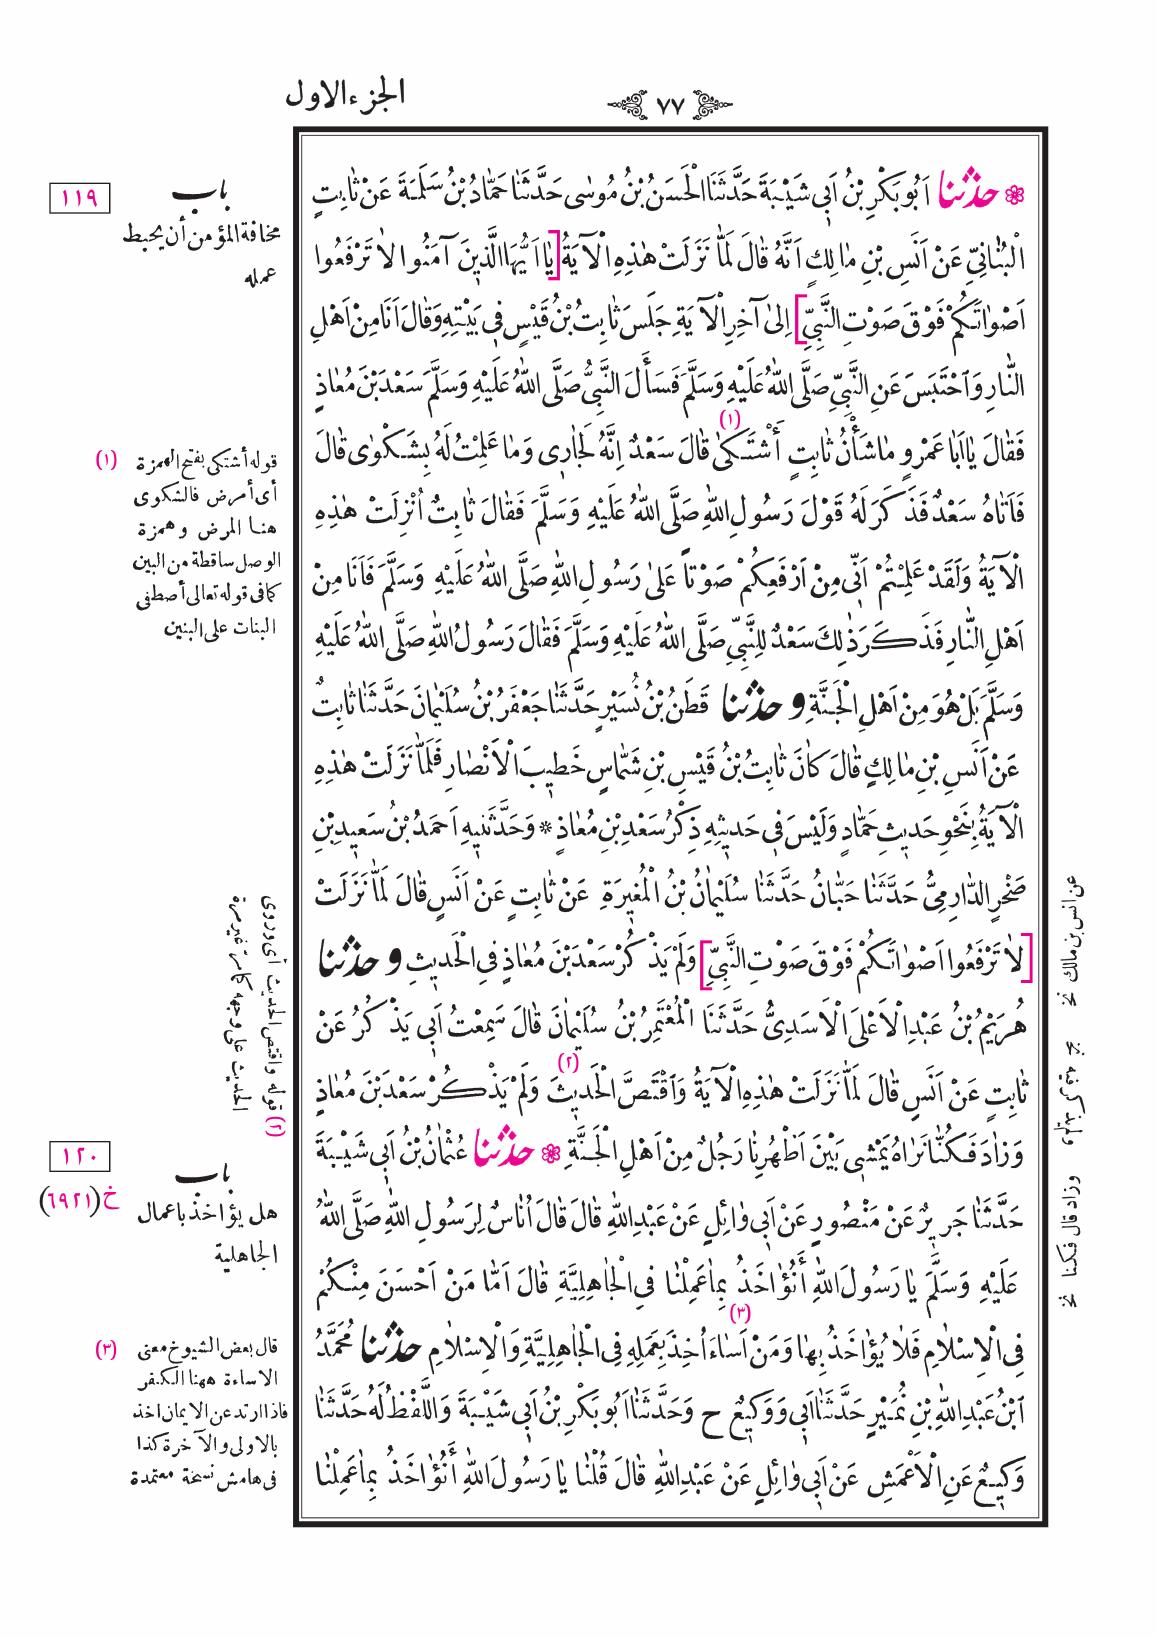 الجزء الاول
٧٧
حَدَّثَنَا اَبُو بَكْرِ بْنُ اَبِي شَيْبَةَ حَدَّثَنَا الْحَسَنُ بْنُ مُوسٰى حَدَّثَنَا حَمَّادُ بْنُ سَلَمَةَ عَنْ ثَابِتٍ
الْبُنَانِيِّ عَنْ اَنَسِ بْنِ مَالِكٍ اَنَّهُ قَالَ لَمَّا نَزَلَتْ هٰذِهِ الْآيَةُ [يَا اَيُّهَا الَّذِينَ آمَنُوا لَا تَرْفَعُوا
اَصْوَاتَكُمْ فَوْقَ صَوْتِ النَّبِيِّ] اِلىٰ آخِرِ الْآيَةِ جَلَسَ ثَابِتُ بْنُ قَيْسٍ فِي بَيْتِهِ وَقَالَ اَنَا مِنْ اَهْلِ
النَّارِ وَاحْتَبَسَ عَنِ النَّبِيِّ صَلَّى اللهُ عَلَيْهِ وَسَلَّمَ فَسَأَلَ النَّبِيُّ صَلَّى اللهُ عَلَيْهِ وَسَلَّمَ سَعْدَ بْنَ مُعَاذٍ
فَقَالَ يَا اَبَا عَمْرٍو مَا شَأْنُ ثَابِتٍ أَشْتَكىٰ (١) قَالَ سَعْدٌ اِنَّهُ لَجَارِي وَمَا عَلِمْتُ لَهُ بِشَكْوٰى قَالَ
فَاَتَاهُ سَعْدٌ فَذَكَرَ لَهُ قَوْلَ رَسُولِ اللهِ صَلَّى اللهُ عَلَيْهِ وَسَلَّمَ فَقَالَ ثَابِتٌ اُنْزِلَتْ هٰذِهِ
الْآيَةُ وَلَقَدْ عَلِمْتُمْ اَنِّي مِنْ اَرْفَعِكُمْ صَوْتاً عَلىٰ رَسُولِ اللهِ صَلَّى اللهُ عَلَيْهِ وَسَلَّمَ فَاَنَا مِنْ
اَهْلِ النَّارِ فَذَكَرَ ذٰلِكَ سَعْدٌ لِلنَّبِيِّ صَلَّى اللهُ عَلَيْهِ وَسَلَّمَ فَقَالَ رَسُولُ اللهِ صَلَّى اللهُ عَلَيْهِ
وَسَلَّمَ بَلْ هُوَ مِنْ اَهْلِ الْجَنَّةِ وحدثنا قَطَنُ بْنُ نُسَيْرٍ حَدَّثَنَا جَعْفَرُ بْنُ سُلَيْمَانَ حَدَّثَنَا ثَابِتٌ
عَنْ اَنَسِ بْنِ مَالِكٍ قَالَ كَانَ ثَابِتُ بْنُ قَيْسِ بْنِ شَمَّاسٍ خَطِيبَ الْاَنْصَارِ فَلَمَّا نَزَلَتْ هٰذِهِ
الْآيَةُ بِنَحْوِ حَدِيثِ حَمَّادٍ وَلَيْسَ فِي حَدِيثِهِ ذِكْرُ سَعْدِ بْنِ مُعَاذٍ * وَحَدَّثَنِيهِ اَحْمَدُ بْنُ سَعِيدِ بْنِ
صَخْرٍ الدَّارِمِيُّ حَدَّثَنَا حَبَّانُ حَدَّثَنَا سُلَيْمَانُ بْنُ الْمُغِيرَةِ عَنْ ثَابِتٍ عَنْ اَنَسٍ قَالَ لَمَّا نَزَلَتْ
[لَا تَرْفَعُوا اَصْوَاتَكُمْ فَوْقَ صَوْتِ النَّبِيِّ] وَلَمْ يَذْكُرْ سَعْدَ بْنَ مُعَاذٍ فِي الْحَدِيثِ وحدثنا
هُرَيْمُ بْنُ عَبْدِ الْاَعْلَى الْاَسَدِيُّ حَدَّثَنَا الْمُعْتَمِرُ بْنُ سُلَيْمَانَ قَالَ سَمِعْتُ اَبِي يَذْكُرُ عَنْ
ثَابِتٍ عَنْ اَنَسٍ قَالَ لَمَّا نَزَلَتْ هٰذِهِ الْآيَةُ وَاقْتَصَّ الْحَدِيثَ (٢) وَلَمْ يَذْكُرْ سَعْدَ بْنَ مُعَاذٍ
وَزَادَ فَكُنَّا نَرَاهُ يَمْشِي بَيْنَ اَظْهُرِنَا رَجُلٌ مِنْ اَهْلِ الْجَنَّةِ حدثنا عُثْمَانُ بْنُ اَبِي شَيْبَةَ
حَدَّثَنَا جَرِيرٌ عَنْ مَنْصُورٍ عَنْ اَبِي وَائِلٍ عَنْ عَبْدِ اللهِ قَالَ قَالَ اُنَاسٌ لِرَسُولِ اللهِ صَلَّى اللهُ
عَلَيْهِ وَسَلَّمَ يَا رَسُولَ اللهِ أَنُؤَاخَذُ بِمَا عَمِلْنَا فِي الْجَاهِلِيَّةِ قَالَ اَمَّا مَنْ اَحْسَنَ مِنْكُمْ
فِي الْاِسْلَامِ فَلَا يُؤَاخَذُ بِهَا وَمَنْ اَسَاءَ (٣) اُخِذَ بِعَمَلِهِ فِي الْجَاهِلِيَّةِ وَالْاِسْلَامِ حدثنا مُحَمَّدُ
ابْنُ عَبْدِ اللهِ بْنِ نُمَيْرٍ حَدَّثَنَا اَبِي وَوَكِيعٌ ح وَحَدَّثَنَا اَبُو بَكْرِ بْنُ اَبِي شَيْبَةَ وَاللَّفْظُ لَهُ حَدَّثَنَا
وَكِيعٌ عَنِ الْاَعْمَشِ عَنْ اَبِي وَائِلٍ عَنْ عَبْدِ اللهِ قَالَ قُلْنَا يَا رَسُولَ اللهِ أَنُؤَاخَذُ بِمَا عَمِلْنَا
١١٩
باب
مخافة المؤمن أن يحبط
عمله
(١) قوله أشتكى بفتح الهمزة
أى أمرض فالشكوى
هنا المرض وهمزة
الوصل ساقطة من البين
كما فى قوله تعالى أصطفى
البنات على البنين
(٢) قوله واقتص الحديث أى وروى
الحديث على وجهه كما مر غير مرة
١٢٠
باب
خ (٦٩٢١)
هل يؤاخذ باعمال
الجاهلية
(٣) قال بعض الشيوخ معنى
الاساءة ههنا الكفر
فاذا ارتد عن الايمان اخذ
بالاولى والآخرة كذا
فى هامش نسخة معتمدة
عن انس بن مالك نخ
وزاد قال فكنا نخ